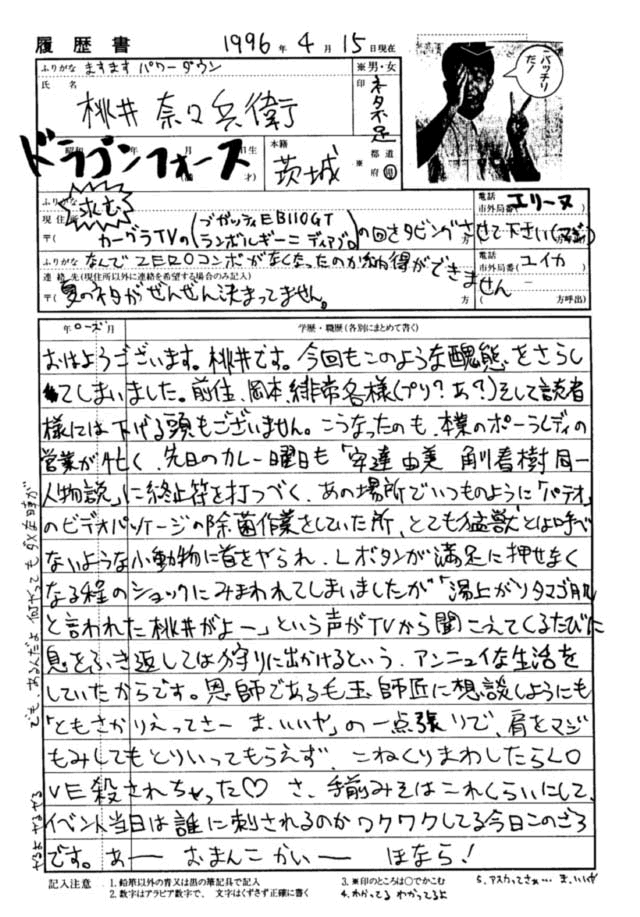 履歴書 1996年4月15日現在
ふりがな ますますパワーダウン ※男・女
氏名 桃井 奈々兵衛 印 ネタ不足
バッチリだ!
ドラゴンフォース
昭和 年 月 日生 (満 才)
本籍 茨城 ※ 都道府県
ふりがな 求む
現住所 〒( カーグラTVの(ブガッティEB110GT ランボルギーニ ディアブロ)の回をダビングさせて下さい(マジ) 方
電話 市外局番( エリーヌ ) 方呼出)
ふりがな なんでZEROコンボがなくなったのか納得ができません
連絡先(現住所以外に連絡を希望する場合のみ記入)
〒( 夏のネタがぜんぜん決まってません。 方
電話 市外局番( ユイカ ) ー ( 方呼出)
年 ローズ 月 学歴・職歴(各別にまとめて書く)
おはようございます。桃井です。今回もこのような醜態をさらし
てしまいました。前住、岡本、緋常各様(プリ?あ?)そして読者
様には下げる頭もございません。こうなったのも、本業のポーラレディの
営業が忙しく、先日のカレー曜日も「安達由美 角川春樹同一
人物説」に終止符を打つべく、あの場所でいつものように「パテオ」
のビデオパッケージの除菌作業をしていた所、とても猛獣とは呼べ
ないような小動物に首をやられ、Lボタンが満足に押せなく
なる程のショックにみまわれてしまいましたが「湯上がりタマゴ肌
と言われた桃井がよー」という声がTVから聞こえてくるたびに
息をふき返しては狩りに出かけるという、アンニュイな生活を
していたからです。恩師である毛玉師匠に想談しようにも
「ともさかりえってさー ま、いいや」の一点張りで、肩をマジ
もみしてもとりいってもらえず、こねくりまわしたらLO
VE殺されちゃった♡ さ、手前みそはこれくらいにして、
イベント当日は誰に刺されるのかワクワクしてる今日このごろ
です。あー おまんこ かいー ほなら!
でも、あるんだよ 何やっても ダメな時が
やるよ やるやる
記入注意 1. 鉛筆以外の青又は黒の筆記具で記入
2. 数字はアラビア数字で、文字はくずさず正確に書く
3. ※印のところは○でかこむ
4. わかってる わかってるよ
5. アスカってさぁ… ま、いいや